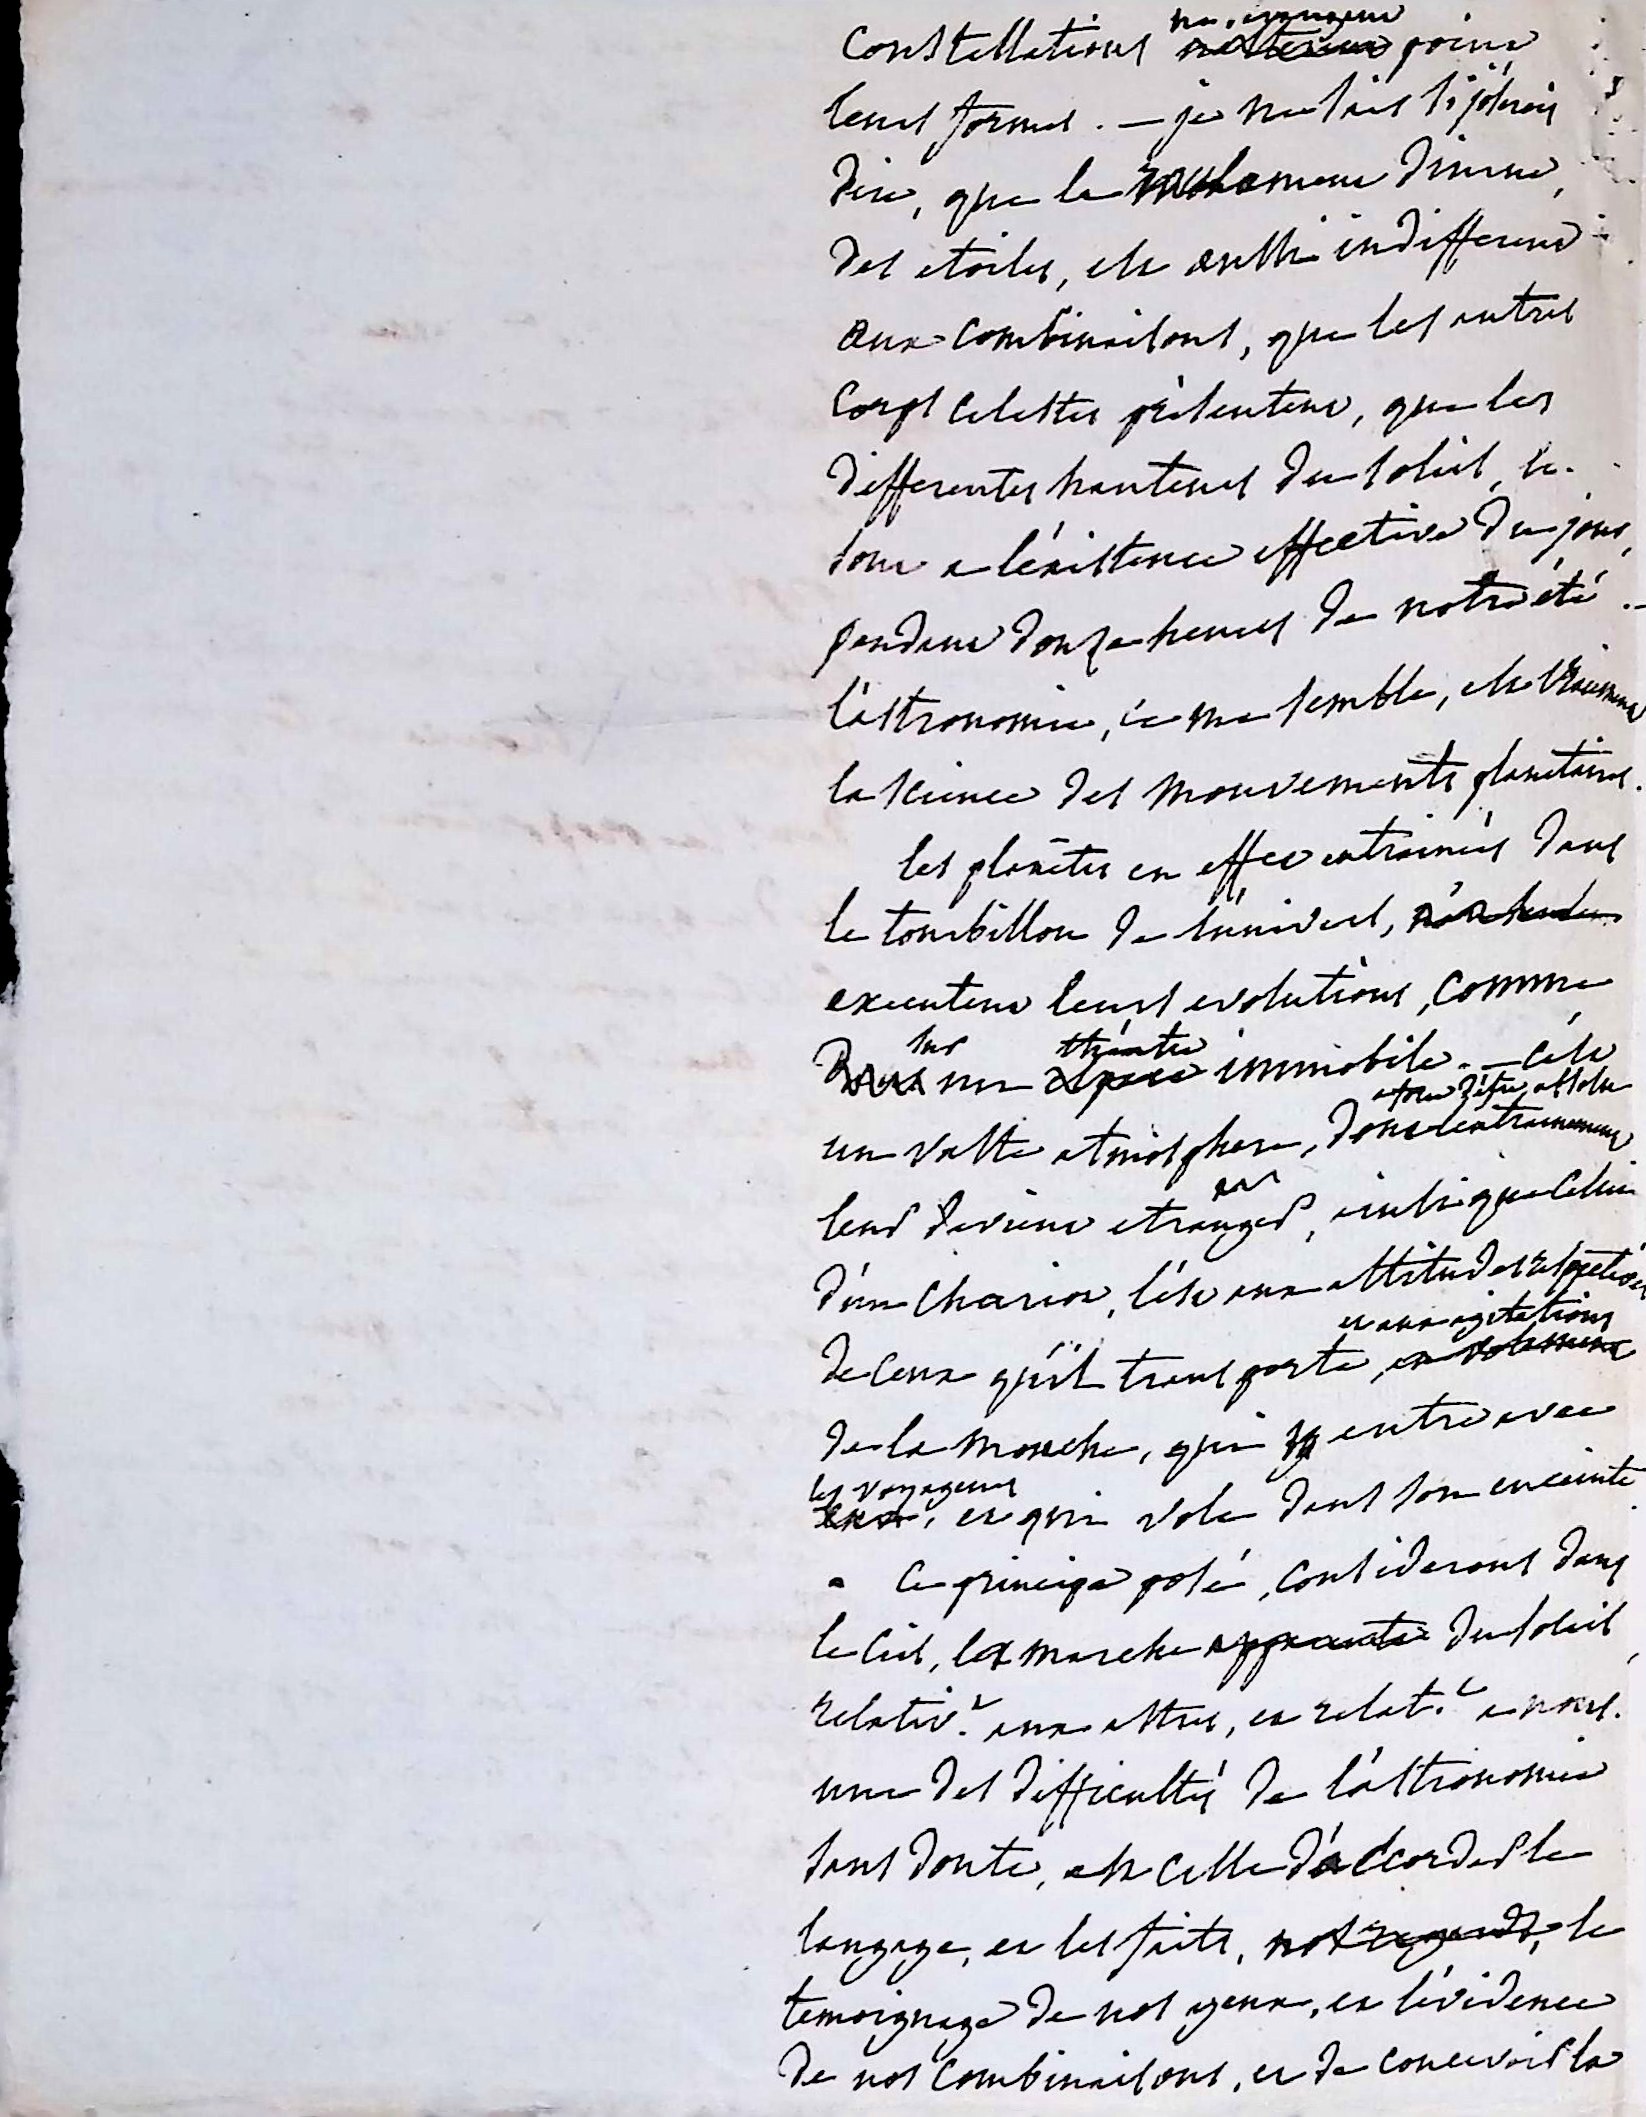 constellations ne changent point
leurs formes. — je ne sais si j'oserois
dire, que le mouvement diurne,
des etoiles, est aussi indifferent
aux combinaisons, que les autres
corps celestes présentent, que les
differentes hauteurs du soleil, le
sont a l'éxistence effective du jour,
pendant douze heures de notre été. —
l'astronomie, ce me semble, est vraiment
la science des mouvements planetaires.
les planètes en effet entrainées dans
le tourbillon de l'univers,
executent leurs evolutions, comme
sur
théatre
Dans un espace immobile. — c'est
une vaste atmosphere, dont l'entrainement
leur devient etranger, ainsi que celui
d'un chariot, l'est aux attitudes respectives
et aux agitations
de ceux qu'il transporte, au
de la mouche, qui y entre avec
les voyageurs
eux, et qui vole dans son enceinte
ce principe posé, considerons dans
le ciel, la marche apparente du soleil,
relativ.t aux astres, et relat.t a nous.
une des difficultés de l'astronomie
sans doute, est celle d'accorder le
langage, et les faits, nos regards, le
temoignage de nos yeux, et l'évidence
de nos combinaisons, et de concevoir la